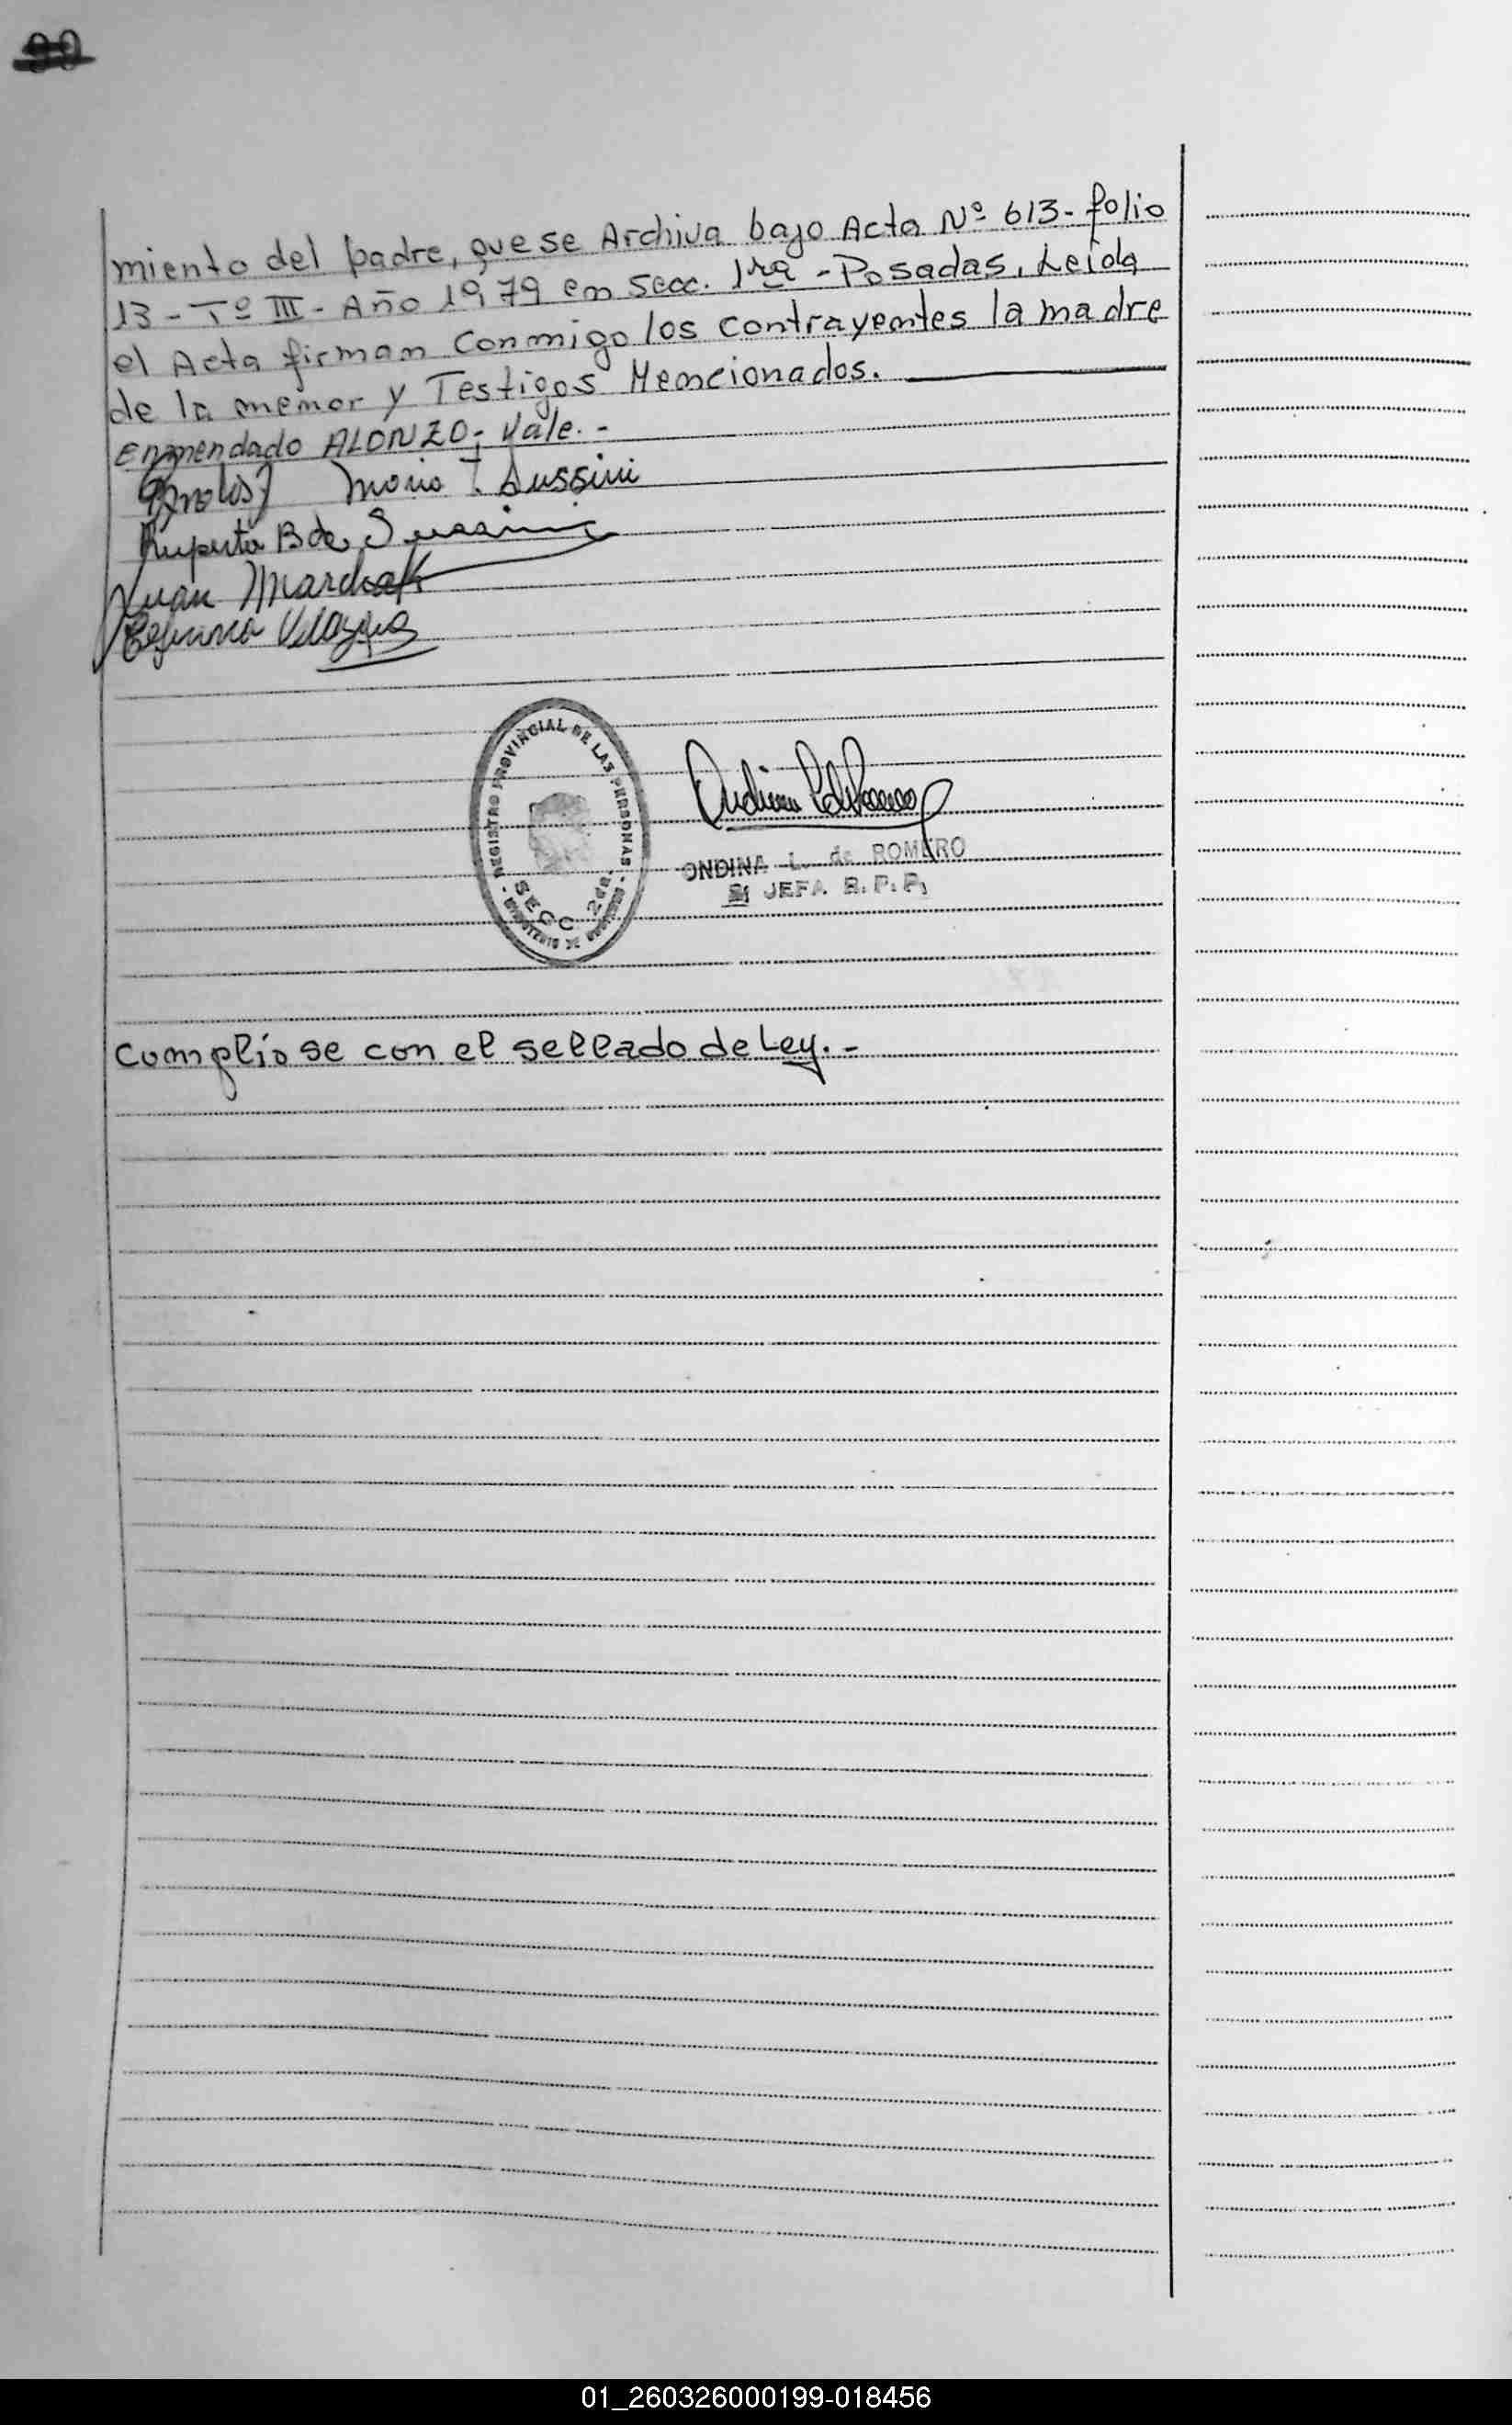 90
miento del padre, que se Archiva bajo Acta Nº 613 - folio
13 - Tº III - Año 1979 en Secc. 1ra - Posadas, Leída
el Acta firman Conmigo los contrayentes la madre
de la menor y Testigos Mencionados.
Enmendado ALONZO, Vale. -
Maria T. Sussini
Ruperta B de Sussini
Juan Marchak
REGISTRO PROVINCIAL DE LAS PERSONAS
SECC 2da.
ONDINA L. de ROMERO
JEFA R. P. P.
Complíose con el sellado de Ley. -
01_260326000199-018456